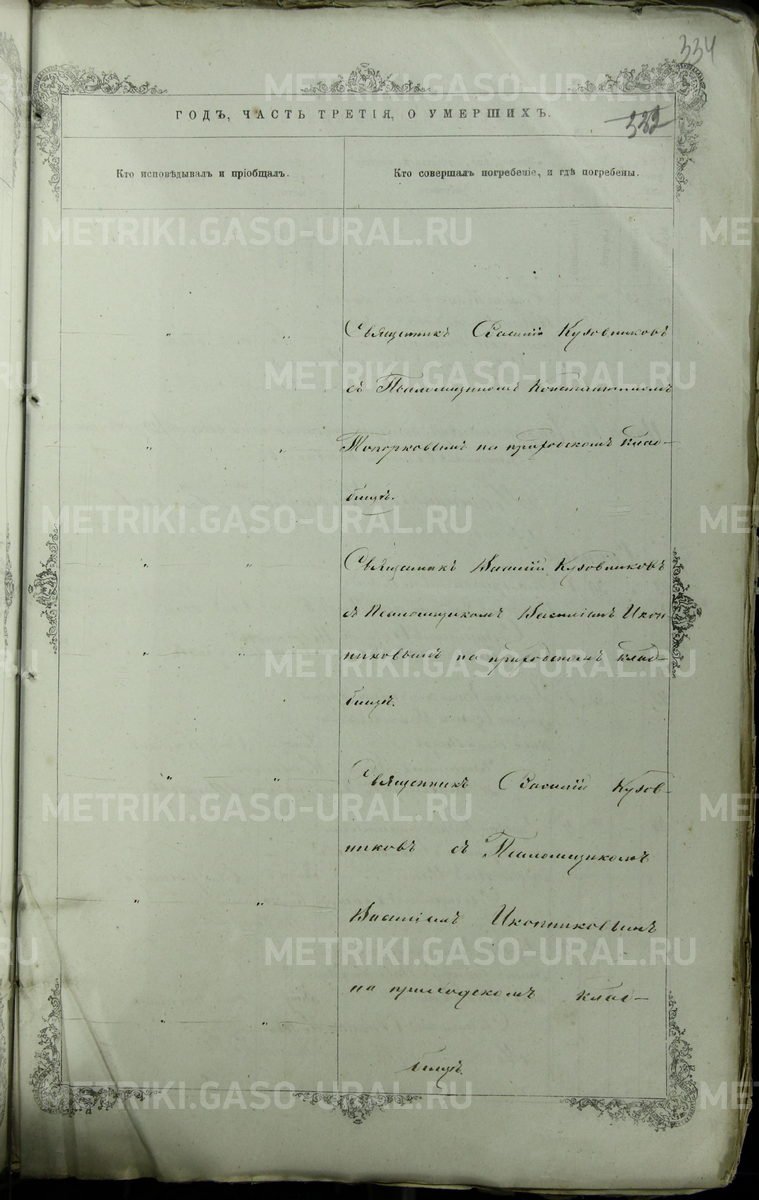 334
332
ГОДЪ, ЧАСТЬ ТРЕТІЯ, О УМЕРШИХЪ.
Кто исповѣдывалъ и пріобщалъ.
Кто совершалъ погребеніе, и гдѣ погребены.
Священникъ Василій Кузовниковъ
съ Псаломщикомъ Константиномъ
Топорковымъ на приходскомъ клад-
бищѣ.
Священникъ Василій Кузовниковъ
съ Псаломщикомъ Василіемъ Икон-
никовымъ на приходскомъ клад-
бищѣ.
Священникъ Василій Кузов-
никовъ съ Псаломщикомъ
Василіемъ Иконниковымъ
на приходскомъ клад-
бищѣ.
METRIKI.GASO-URAL.RU